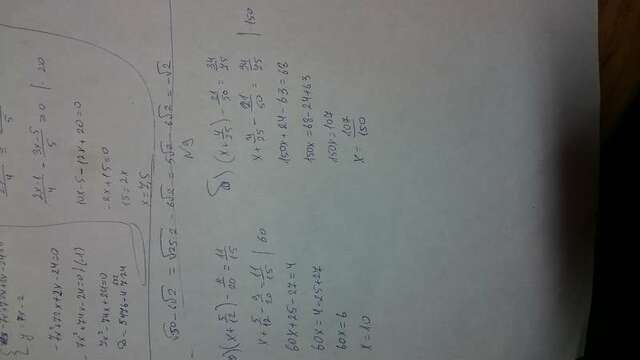 y = 7x - 2
-7x²+72x+2x-24=0
7x²+74x-24=0 |(-1)
7x²-74x+24=0
D=5476-4·7·24
(2x-1)/4 - (3x-5)/5 = 0 | · 20
10x-5-12x+20=0
-2x+15=0
15=2x
x=7,5
√50-6√2 = √25·2 - 6√2 = 5√2 - 6√2 = -√2
N9
(x+5/12)-9/20=11/15
x+5/12-9/20=11/15 | 60
60x+25-27=4
60x=4-25+27
60x=6
x=10
б) (x+4/25)-21/50=34/75
x+4/25-21/50=34/75 | 150
150x+24-63=68
150x=68-24+63
150x=107
x=107/150